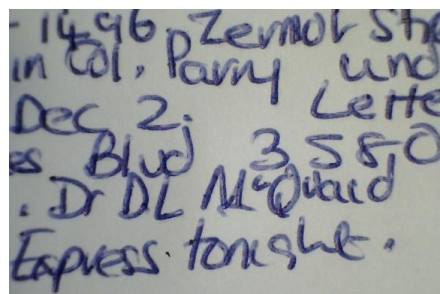 - 1496. Zermot Str
in Col. Parry und
Dec 2. Lette
es Blvd 3580
. Dr DL McQuaid
Express tonight.